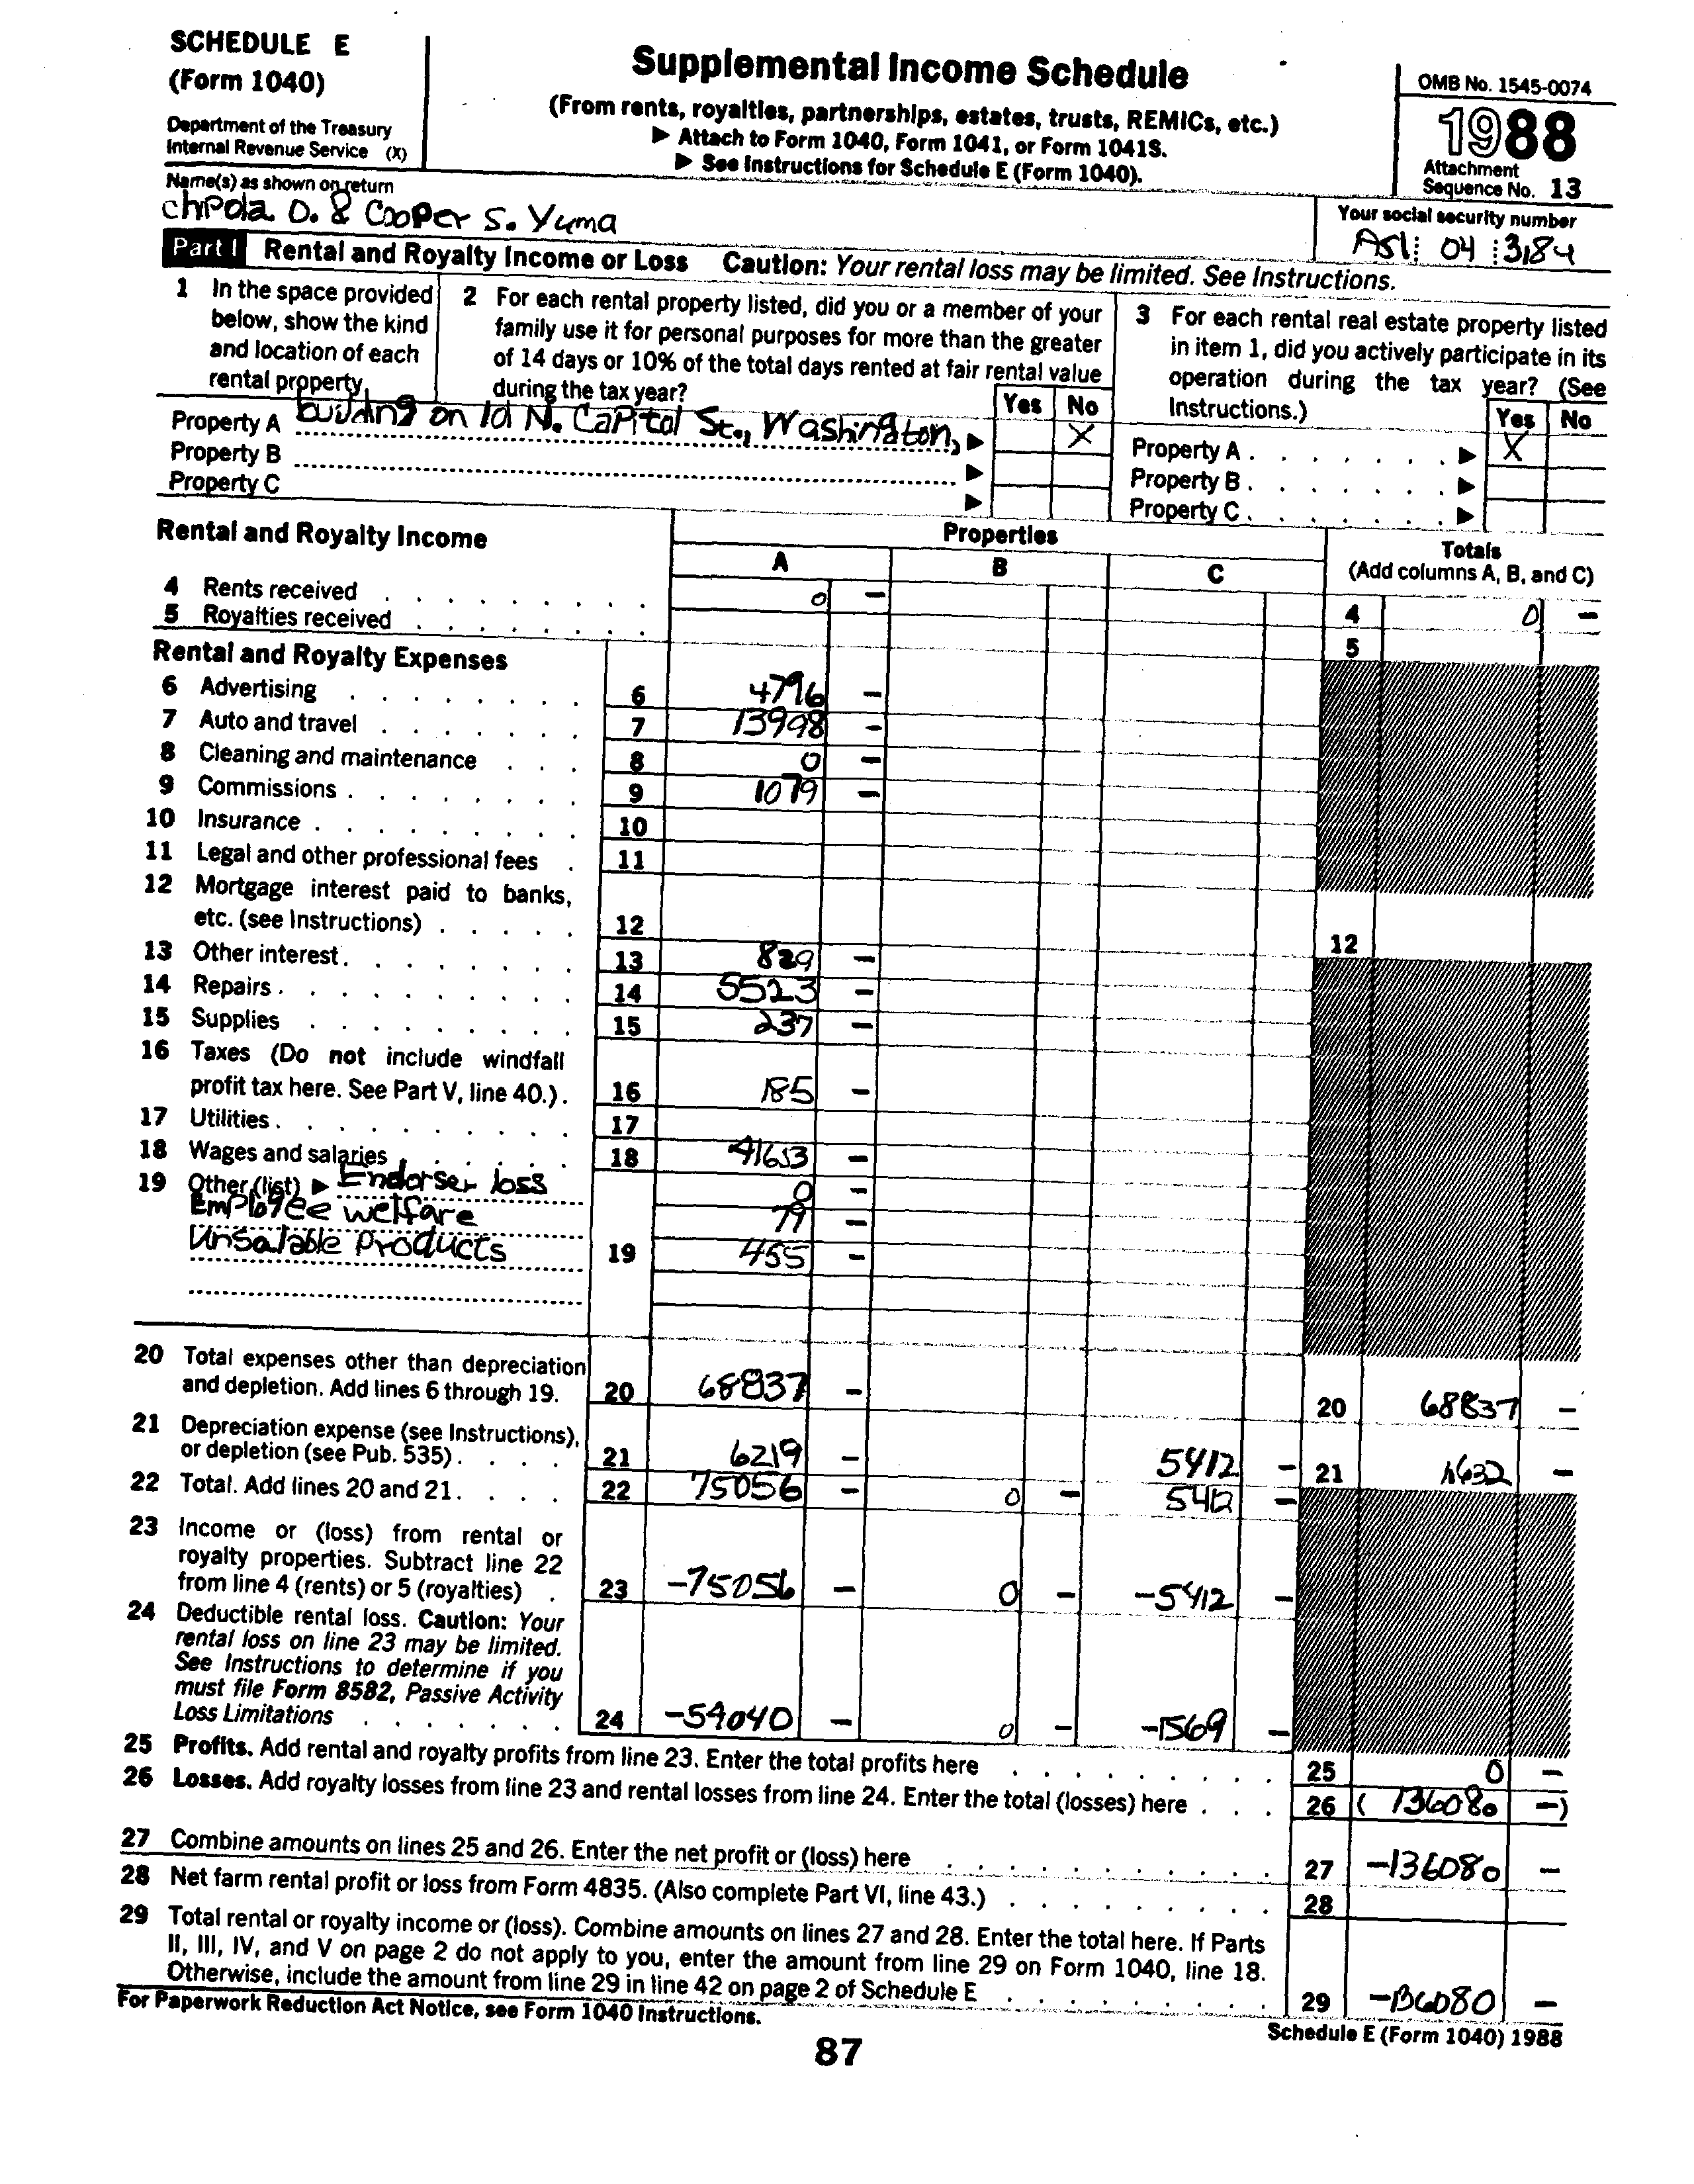 SCHEDULE E
(Form 1040)
Department of the Treasury
Internal Revenue Service (X)
Supplemental Income Schedule
(From rents, royalties, partnerships, estates, trusts, REMICs, etc.)
▶ Attach to Form 1040, Form 1041, or Form 1041S.
▶ See Instructions for Schedule E (Form 1040).
OMB No. 1545-0074
1988
Attachment
Sequence No. 13
Name(s) as shown on return
Chipola D. & Cooper S. Yuma
Your social security number
04 3184
Part I Rental and Royalty Income or Loss Caution: Your rental loss may be limited. See Instructions.
1 In the space provided
below, show the kind
and location of each
rental property.
2 For each rental property listed, did you or a member of your
family use it for personal purposes for more than the greater
of 14 days or 10% of the total days rented at fair rental value
during the tax year?
Yes No
3 For each rental real estate property listed
in item 1, did you actively participate in its
operation during the tax year? (See
Instructions.)
Yes No
Property A building on N. Capitol St., Washington, ▶ X
Property B ▶
Property C ▶
Property A . . . . . . . ▶ X
Property B . . . . . . . ▶
Property C . . . . . . . ▶
Rental and Royalty Income
Properties
A B C
Totals
(Add columns A, B, and C)
4 Rents received 0 - 4 0 -
5 Royalties received 5
Rental and Royalty Expenses
6 Advertising 6 4796 -
7 Auto and travel 7 13998 -
8 Cleaning and maintenance 8 0 -
9 Commissions 9 1079 -
10 Insurance 10
11 Legal and other professional fees 11
12 Mortgage interest paid to banks,
etc. (see Instructions) 12 12
13 Other interest 13 829 -
14 Repairs 14 5523 -
15 Supplies 15 237 -
16 Taxes (Do not include windfall
profit tax here. See Part V, line 40.) 16 185 -
17 Utilities 17
18 Wages and salaries 18 41653 -
19 Other (list) ▶ Endorser loss 0 -
Employee welfare 79 -
Unsalable Products 19 455 -
20 Total expenses other than depreciation
and depletion. Add lines 6 through 19. 20 68837 - 20 68837 -
21 Depreciation expense (see Instructions),
or depletion (see Pub. 535) 21 6219 - 5412 - 21 11632 -
22 Total. Add lines 20 and 21 22 75056 - 0 - 5412 -
23 Income or (loss) from rental or
royalty properties. Subtract line 22
from line 4 (rents) or 5 (royalties) 23 -75056 - 0 - -5412 -
24 Deductible rental loss. Caution: Your
rental loss on line 23 may be limited.
See Instructions to determine if you
must file Form 8582, Passive Activity
Loss Limitations 24 -59040 - 0 - -1569 -
25 Profits. Add rental and royalty profits from line 23. Enter the total profits here 25 0 -
26 Losses. Add royalty losses from line 23 and rental losses from line 24. Enter the total (losses) here 26 ( 136080 -)
27 Combine amounts on lines 25 and 26. Enter the net profit or (loss) here 27 -136080 -
28 Net farm rental profit or loss from Form 4835. (Also complete Part VI, line 43.) 28
29 Total rental or royalty income or (loss). Combine amounts on lines 27 and 28. Enter the total here. If Parts
II, III, IV, and V on page 2 do not apply to you, enter the amount from line 29 on Form 1040, line 18.
Otherwise, include the amount from line 29 in line 42 on page 2 of Schedule E 29 -136080 -
For Paperwork Reduction Act Notice, see Form 1040 Instructions.
Schedule E (Form 1040) 1988
87